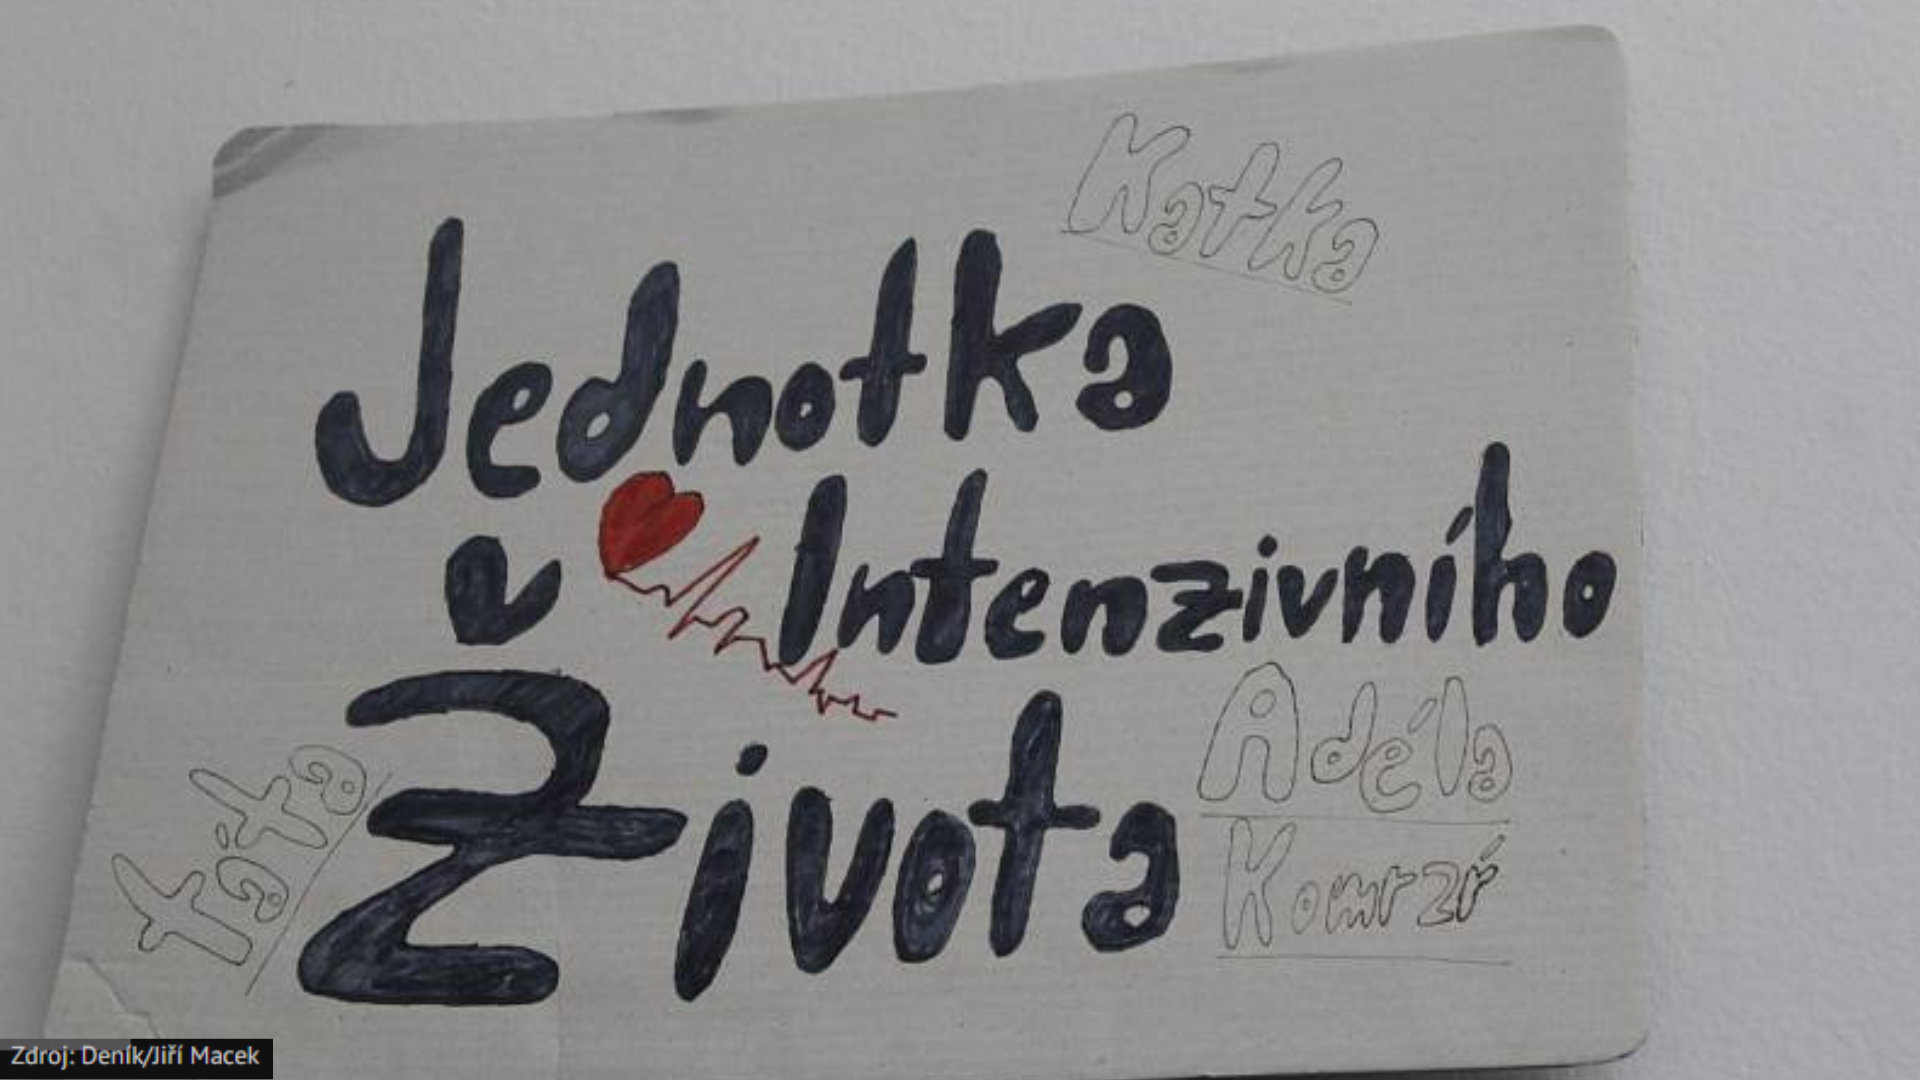 Katka
Jednotka
Intenzivního
Života
táta
Adéla
Komrzí
Zdroj: Deník/Jiří Macek